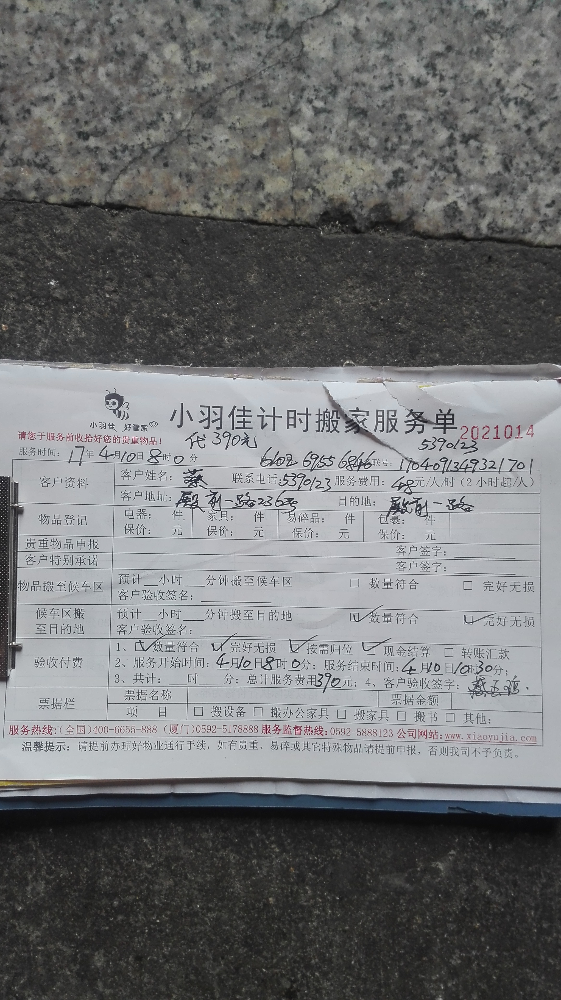 小羽佳 好管家
小羽佳计时搬家服务单
2021014
请您于服务前收拾好您的贵重物品!
代390元
5390123
服务时间: 17年4月10日8时0分
6102 6955 6846
1704091349321701
客户资料
客户姓名: 联系电话: 5390123 服务费用: 元/人/时(2小时起/人)
客户地址: 殿前一路236号 目的地: 殿前一路
物品登记
电器: 件 家具: 件 易碎品: 件 包裹: 件
保价: 元 保价: 元 保价: 元 保价: 元
贵重物品申报 客户签字:
客户特别承诺 客户签字:
物品搬至候车区
预计__小时__分钟搬至候车区 □ 数量符合 □ 完好无损
客户验收签名:
候车区搬至目的地
预计__小时__分钟搬至目的地 ☑数量符合 ☑完好无损
客户验收签名:
验收付费
1、☑数量符合 ☑完好无损 ☑按需归位 ☑现金结算 □ 转账汇款
2、服务开始时间: 4月10日8时0分; 服务结束时间: 4月10日10时30分;
3、共计: 时 分; 总计服务费用390元; 4、客户验收签字:
票据栏
票据名称 票据金额
项 目 □ 搬设备 □ 搬办公家具 □ 搬家具 □ 搬书 □ 其他:
服务热线:(全国)400-6655-888 (厦门)0592-5.78888 服务监督热线:0592 5888123 公司网站:www.xiaoyujia.com
温馨提示: 请提前办理好物业通行手续, 如有贵重、易碎或其它特殊物品请提前申报, 否则我司不予负责。